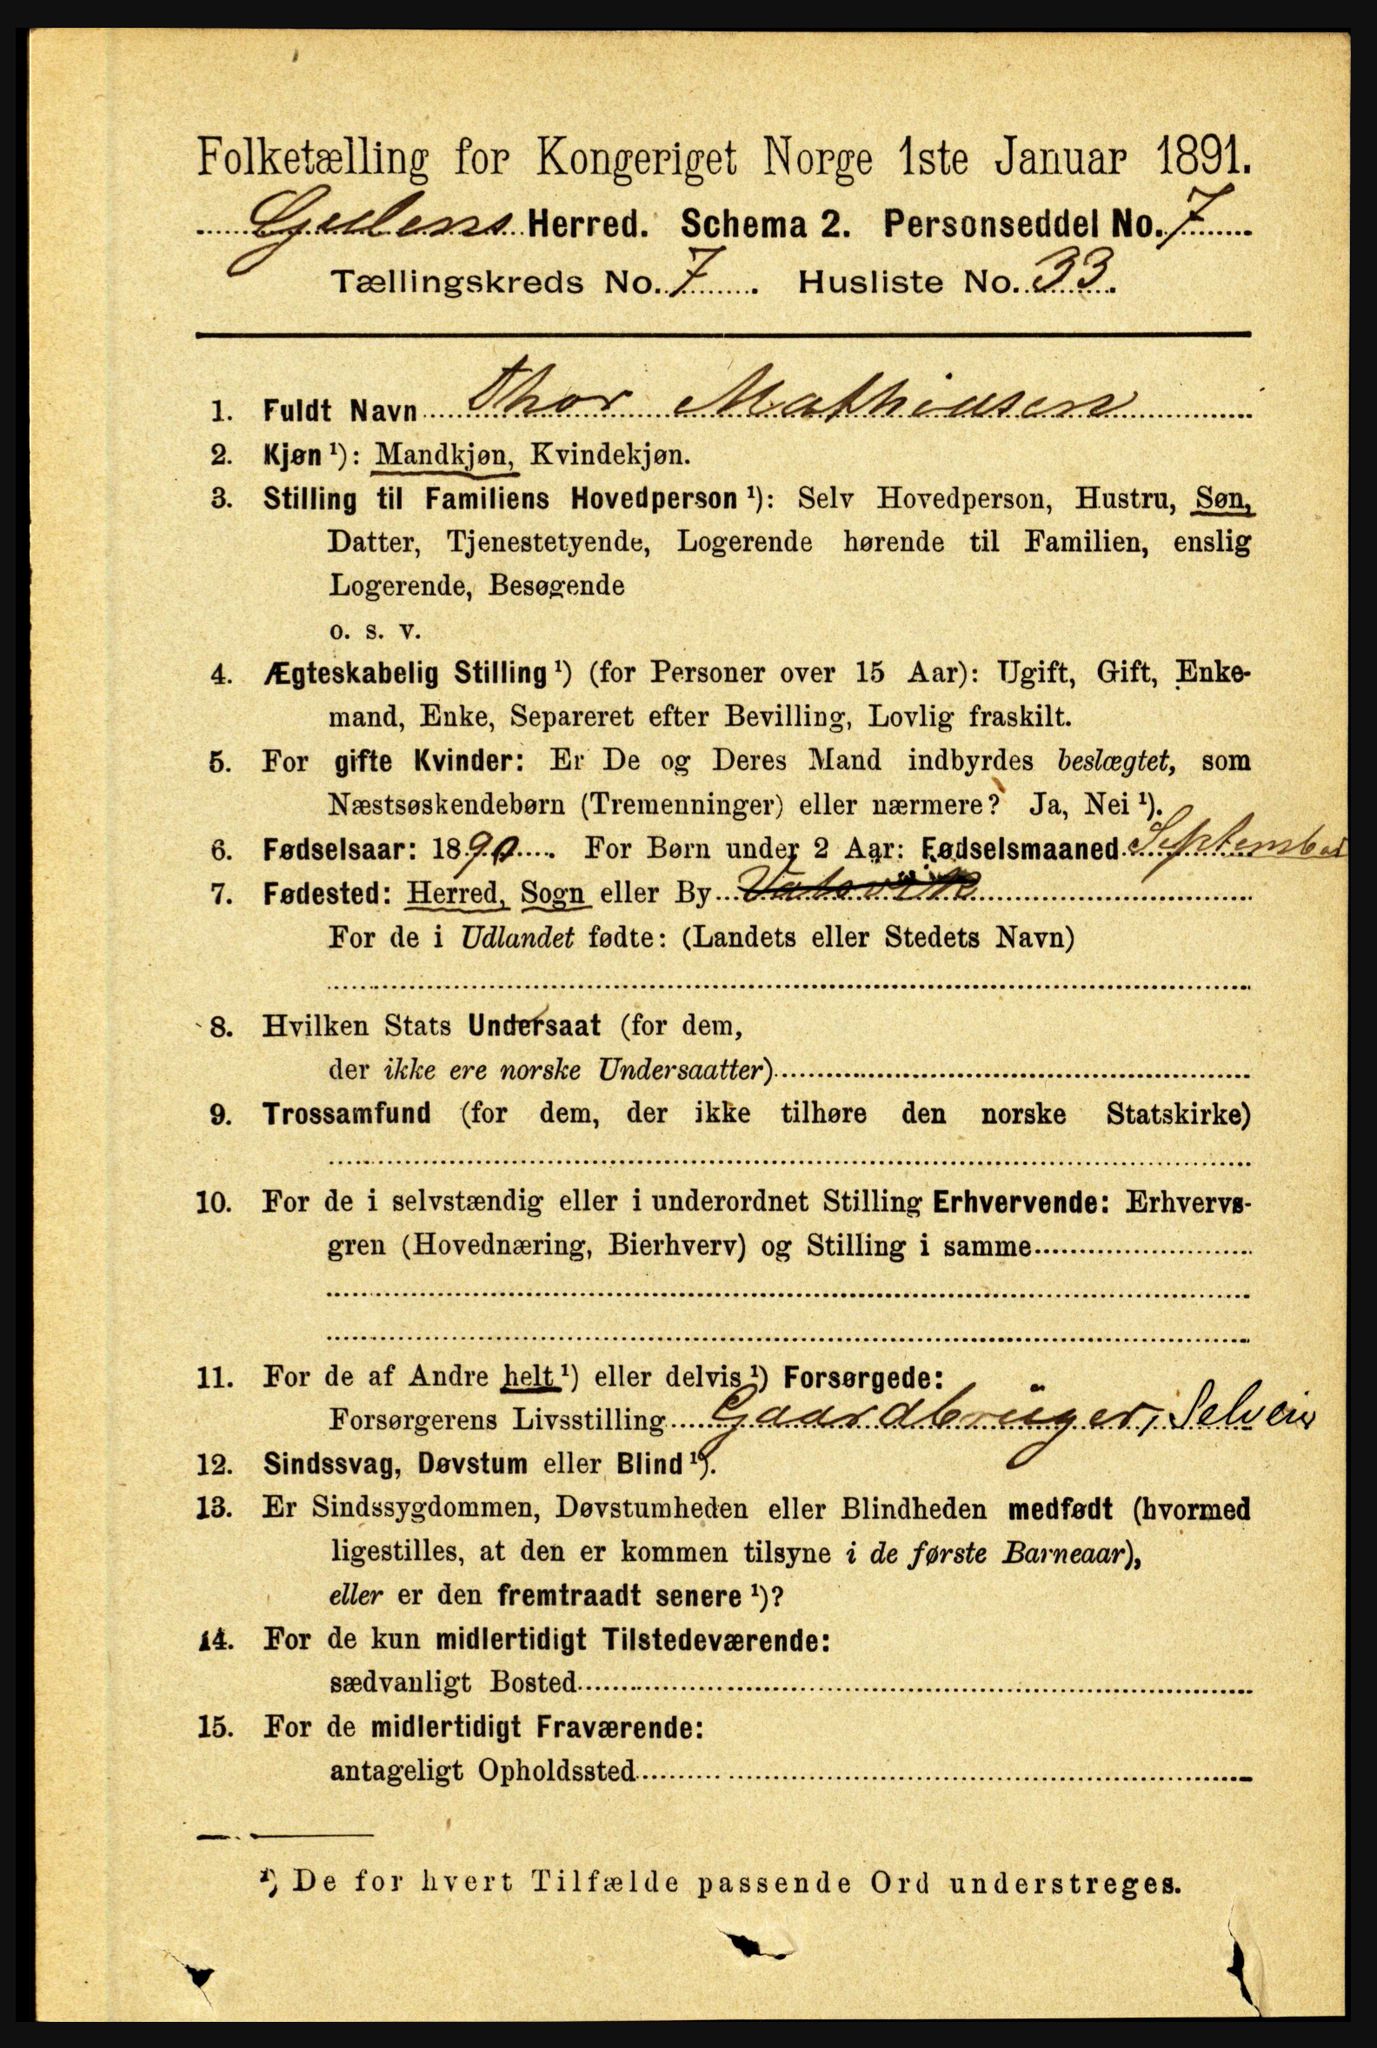 Folketælling for Kongeriget Norge 1ste Januar 1891.
Gulens Herred. Schema 2. Personseddel No. 7
Tællingskreds No. 7. Husliste No. 33.
1. Fuldt Navn Thor Mathiesen
2. Kjøn ¹): Mandkjøn, Kvindekjøn.
3. Stilling til Familiens Hovedperson ¹): Selv Hovedperson, Hustru, Søn,
Datter, Tjenestetyende, Logerende hørende til Familien, enslig
Logerende, Besøgende
o. s. v.
4. Ægteskabelig Stilling ¹) (for Personer over 15 Aar): Ugift, Gift, Enke-
mand, Enke, Separeret efter Bevilling, Lovlig fraskilt.
5. For gifte Kvinder: Er De og Deres Mand indbyrdes beslægtet, som
Næstsøskendebørn (Tremenninger) eller nærmere? Ja, Nei ¹).
6. Fødselsaar: 1890. For Børn under 2 Aar: Fødselsmaaned September
7. Fødested: Herred, Sogn eller By
For de i Udlandet fødte: (Landets eller Stedets Navn)
8. Hvilken Stats Undersaat (for dem,
der ikke ere norske Undersaatter)
9. Trossamfund (for dem, der ikke tilhøre den norske Statskirke)
10. For de i selvstændig eller i underordnet Stilling Erhvervende: Erhvervs-
gren (Hovednæring, Bierhverv) og Stilling i samme
11. For de af Andre helt ¹) eller delvis ¹) Forsørgede:
Forsørgerens Livsstilling Gaardbruger, Selveier
12. Sindssvag, Døvstum eller Blind ¹).
13. Er Sindssygdommen, Døvstumheden eller Blindheden medfødt (hvormed
ligestilles, at den er kommen tilsyne i de første Barneaar),
eller er den fremtraadt senere ¹)?
14. For de kun midlertidigt Tilstedeværende:
sædvanligt Bosted
15. For de midlertidigt Fraværende:
antageligt Opholdssted
¹) De for hvert Tilfælde passende Ord understreges.